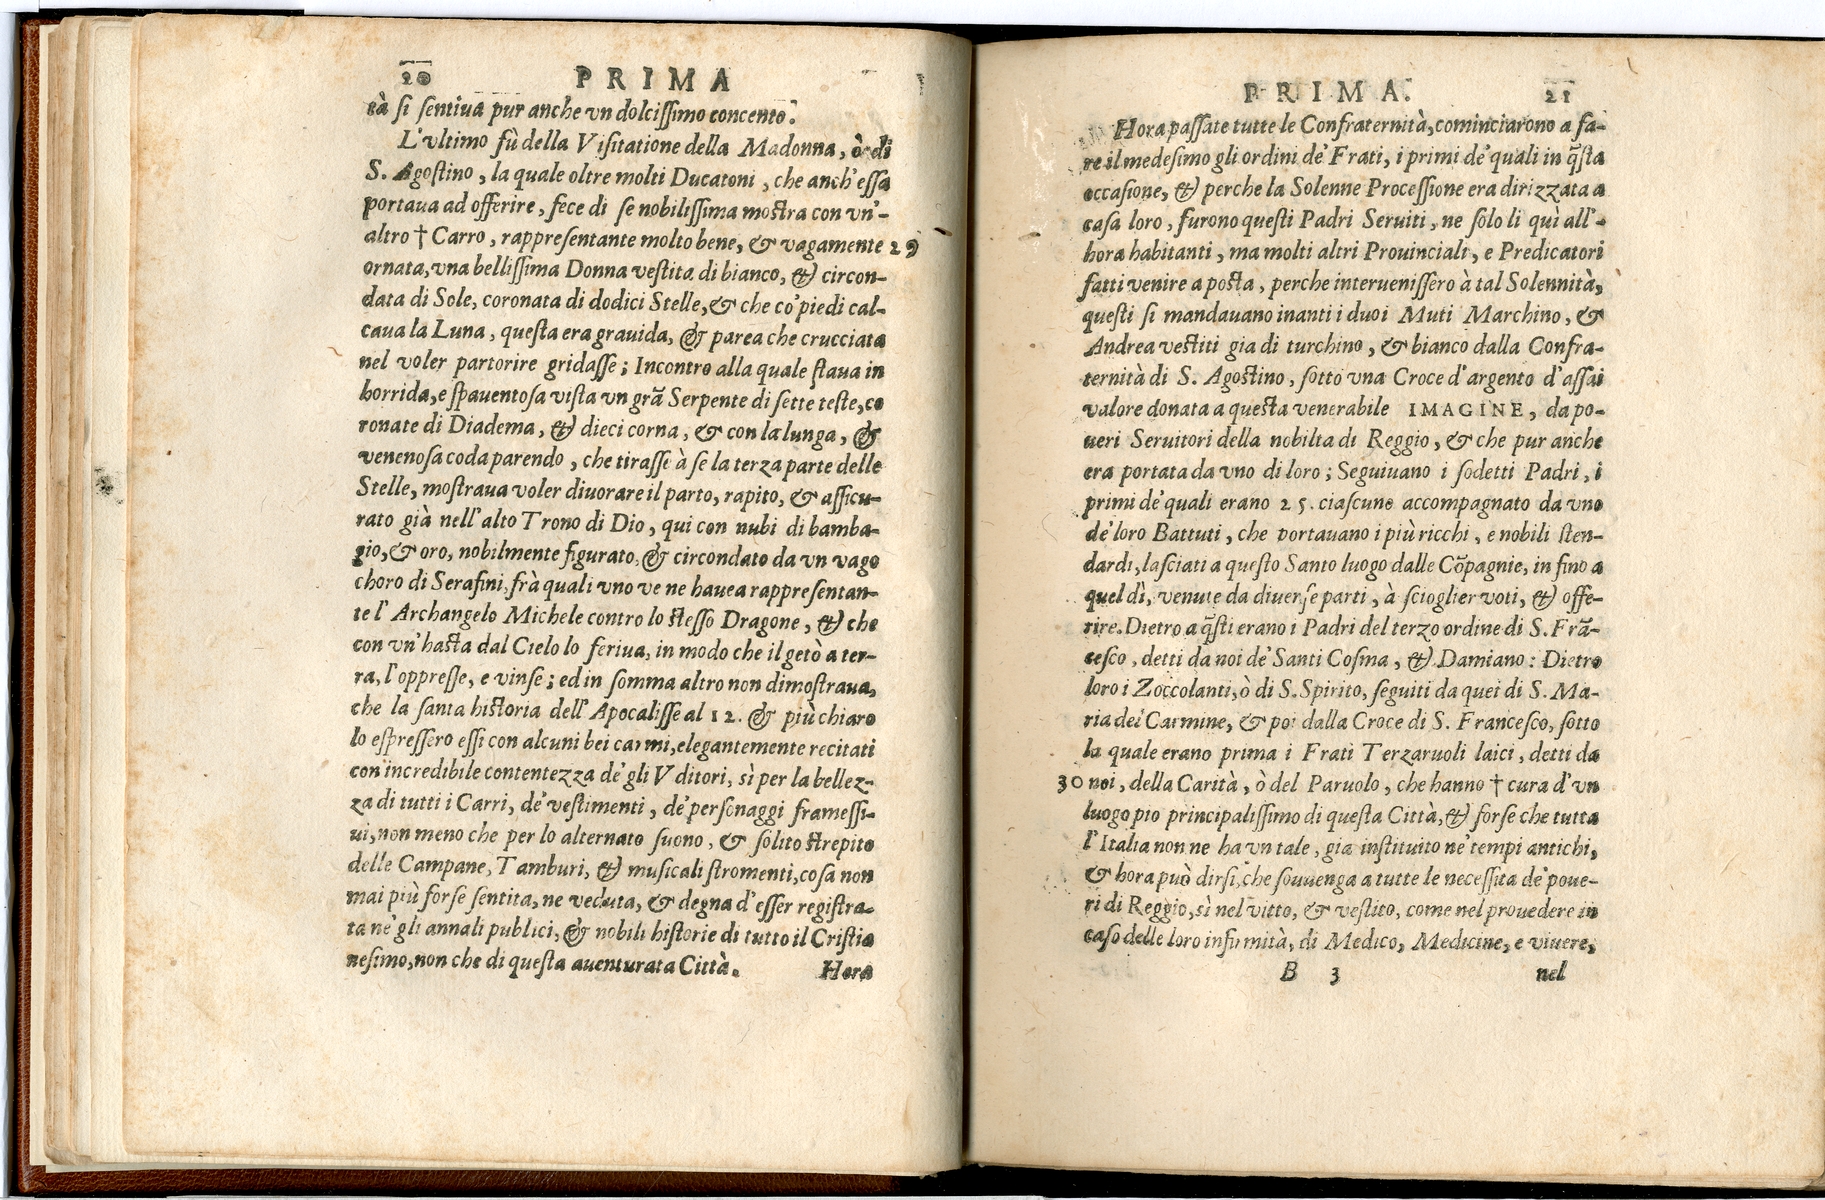 20 PRIMA
tà si sentiua pur anche vn dolcissimo concento.
L'vltimo fù della Visitatione della Madonna, ò di
S. Agostino, la quale oltre molti Ducatoni, che anch'essa
portaua ad offerire, fece di se nobilissima mostra con vn'-
altro † Carro, rappresentante molto bene, & vagamente 29
ornata, vna bellissima Donna vestita di bianco, & circon-
data di Sole, coronata di dodici Stelle, & che co' piedi cal-
caua la Luna, questa era grauida, & parea che crucciata
nel voler partorire gridasse; Incontro alla quale staua in
horrida, e spauentosa vista vn grã Serpente di sette teste, co
ronate di Diadema, & dieci corna, & con la lunga, &
venenosa coda parendo, che tirasse à se la terza parte delle
Stelle, mostraua voler diuorare il parto, rapito, & assicu-
rato già nell'alto Trono di Dio, qui con nubi di bamba-
gio, & oro, nobilmente figurato, & circondato da vn vago
choro di Serafini, frà quali vno ve ne hauea rappresentan-
te l'Archangelo Michele contro lo stesso Dragone, & che
con vn'hasta dal Cielo lo feriua, in modo che il getò a ter-
ra, l'oppresse, e vinse; ed in somma altro non dimostraua,
che la santa historia dell'Apocalisse al 12. & più chiaro
lo espressero essi con alcuni bei carmi, elegantemente recitati
con incredibile contentezza de' gli Vditori, sì per la bellez-
za di tutti i Carri, de' vestimenti, de' personaggi framessi-
ui, non meno che per lo alternato suono, & solito strepito
delle Campane, Tamburi, & musicali stromenti, cosa non
mai più forse sentita, ne veduta, & degna d'esser registra-
ta ne' gli annali publici, & nobili historie di tutto il Cristia
nesimo, non che di questa auenturata Città.
Hora
PRIMA. 21
Hora passate tutte le Confraternità, cominciarono a fa-
re il medesimo gli ordini de' Frati, i primi de' quali in q̃sta
occasione, & perche la Solenne Processione era dirizzata a
casa loro, furono questi Padri Seruiti, ne solo li quì all'-
hora habitanti, ma molti altri Prouinciali, e Predicatori
fatti venire a posta, perche interuenissero à tal Solennità,
questi si mandauano inanti i duoi Muti Marchino, &
Andrea vestiti gia di turchino, & bianco dalla Confra-
ternità di S. Agostino, sotto vna Croce d'argento d'assai
valore donata a questa venerabile IMAGINE, da po-
ueri Seruitori della nobilta di Reggio, & che pur anche
era portata da vno di loro; Seguiuano i sodetti Padri, i
primi de' quali erano 25. ciascuno accompagnato da vno
de' loro Battuti, che portauano i più ricchi, e nobili sten-
dardi, lasciati a questo Santo luogo dalle Cõpagnie, in fino a
quel dì, venute da diuerse parti, à scioglier voti, & offe-
rire. Dietro a q̃sti erano i Padri del terzo ordine di S. Frã-
cesco, detti da noi de' Santi Cosma, & Damiano: Dietro
loro i Zoccolanti, ò di S. Spirito, seguiti da quei di S. Ma-
ria del Carmine, & poi dalla Croce di S. Francesco, sotto
la quale erano prima i Frati Terzaruoli laici, detti da
30 noi, della Carità, ò del Paruolo, che hanno † cura d'vn
luogo pio principalissimo di questa Città, & forse che tutta
l'Italia non ne ha vn tale, gia instituito ne' tempi antichi,
& hora può dirsi, che souuenga a tutte le necessita de' poue-
ri di Reggio, sì nel vitto, & vestito, come nel prouedere in
caso delle loro infirmità, di Medico, Medicine, e viuere,
B 3 nel